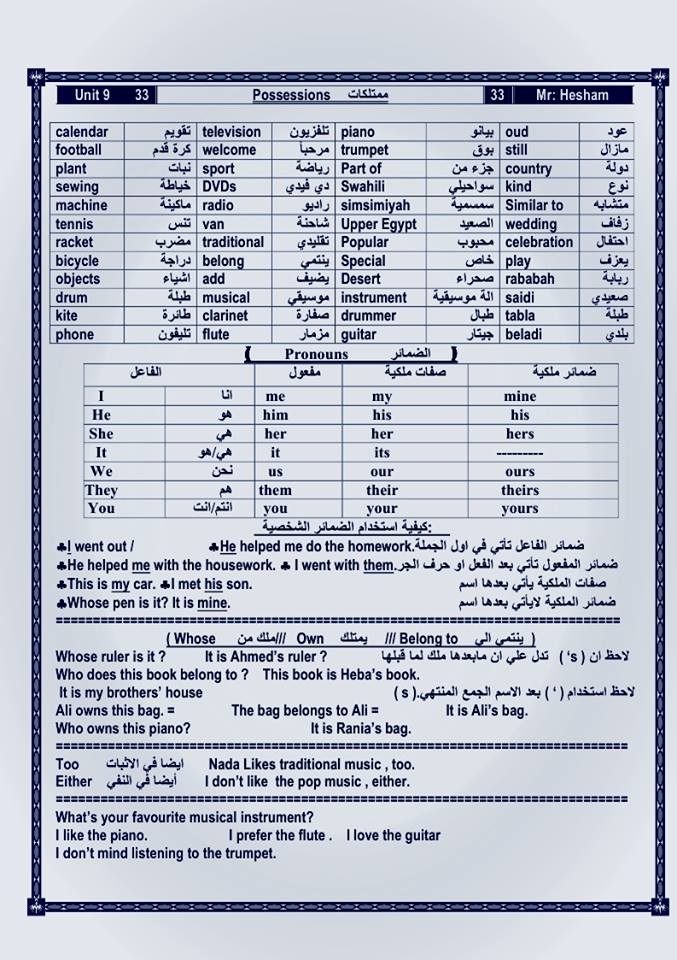 Unit 9 33 Possessions ممتلكات 33 Mr: Hesham
calendar تقويم television تلفزيون piano بيانو oud عود
football كرة قدم welcome مرحباً trumpet بوق still مازال
plant نبات sport رياضة Part of جزء من country دولة
sewing خياطة DVDs دي فيدي Swahili سواحيلي kind نوع
machine ماكينة radio راديو simsimiyah سمسمية Similar to متشابه
tennis تنس van شاحنة Upper Egypt الصعيد wedding زفاف
racket مضرب traditional تقليدي Popular محبوب celebration احتفال
bicycle دراجة belong ينتمي Special خاص play يعزف
objects اشياء add يضيف Desert صحراء rababah ربابة
drum طبلة musical موسيقي instrument الة موسيقية saidi صعيدي
kite طائرة clarinet صفارة drummer طبال tabla طبلة
phone تليفون flute مزمار guitar جيتار beladi بلدي
( Pronouns الضمائر )
الفاعل مفعول صفات ملكية ضمائر ملكية
I انا me my mine
He هو him his his
She هي her her hers
It هي/هو it its ---------
We نحن us our ours
They هم them their theirs
You انتم/انت you your yours
كيفية استخدام الضمائر الشخصية:
♣I went out / ♣He helped me do the homework.ضمائر الفاعل تأتي في اول الجملة
♣He helped me with the housework. ♣ I went with them.ضمائر المفعول تأتي بعد الفعل او حرف الجر
♣This is my car. ♣I met his son. صفات الملكية يأتي بعدها اسم
♣Whose pen is it? It is mine. ضمائر الملكية لايأتي بعدها اسم
( Whose ملك من /// Own يمتلك /// Belong to ينتمي الي )
Whose ruler is it ? It is Ahmed's ruler ? لاحظ ان ( 's ) تدل علي ان مابعدها ملك لما قبلها
Who does this book belong to ? This book is Heba's book.
It is my brothers' house لاحظ استخدام ( ' ) بعد الاسم الجمع المنتهي.( s )
Ali owns this bag. = The bag belongs to Ali = It is Ali's bag.
Who owns this piano? It is Rania's bag.
Too ايضا في الاثبات Nada Likes traditional music , too.
Either أيضا في النفي I don't like the pop music , either.
What's your favourite musical instrument?
I like the piano. I prefer the flute . I love the guitar
I don't mind listening to the trumpet.